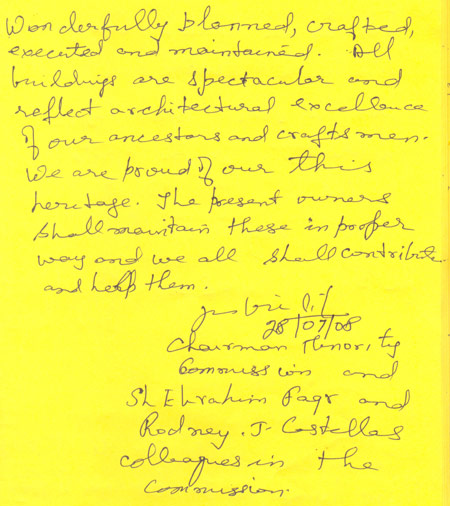 Wonderfully planned, crafted,
executed and maintained. All
buildings are spectacular and
reflect architectural excellence
of our ancestors and craftsmen.
We are proud of our this
heritage. The present owners
shall maintain these in proper
way and we all shall contribute
and help them.
28/07/08
Chairman Minority
Commission and
Sh Ebrahim and
Rodney. J. Costellas
colleagues in the
Commission.